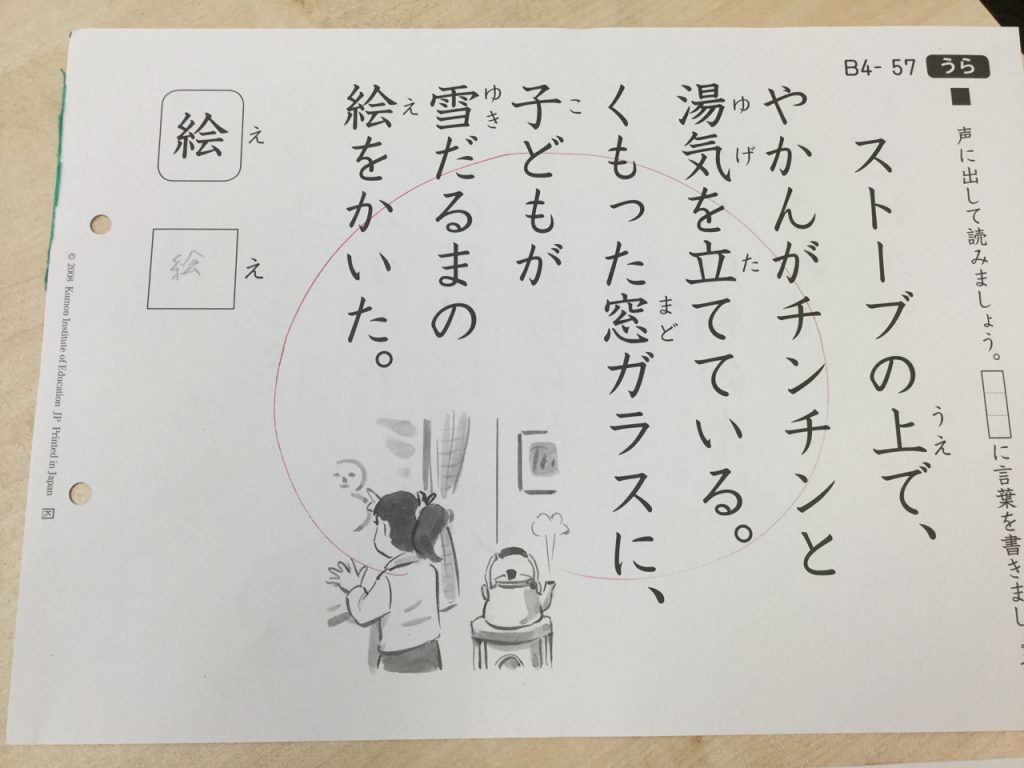 B4-57 うら
■ 声に出して読みましょう。 に言葉を書きまし
ストーブの上で、
うえ
やかんがチンチンと
湯気を立てている。
ゆげ た
くもった窓ガラスに、
まど
子どもが
こ
雪だるまの
ゆき
絵をかいた。
え
絵 え
絵 え
© 2008 Kumon Institute of Education JP Printed in Japan